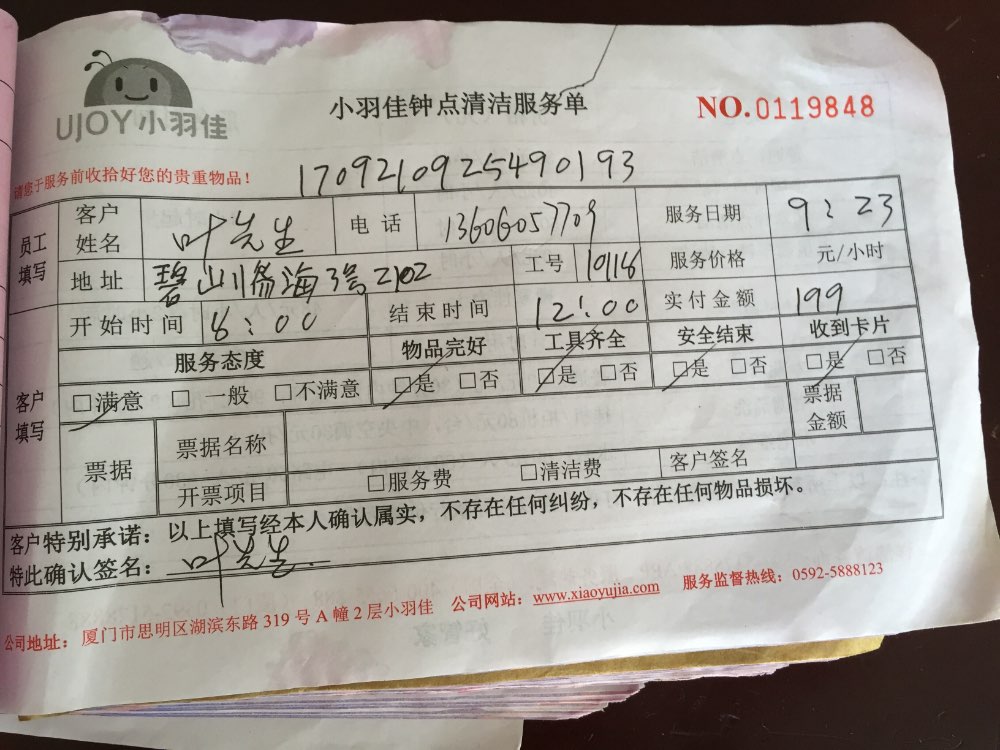 UJOY小羽佳
小羽佳钟点清洁服务单
NO.0119848
请您于服务前收拾好您的贵重物品！
1709210925490193
员工填写 客户姓名 叶先生 电话 13606057709 服务日期 9：23
地址 碧山临海3号2102 工号 10118 服务价格 元/小时
开始时间 8：00 结束时间 12：00 实付金额 199
客户填写 服务态度 物品完好 工具齐全 安全结束 收到卡片
□满意 □一般 □不满意 □是 □否 □是 □否 □是 □否 □是 □否
票据 票据名称 票据金额
开票项目 □服务费 □清洁费 客户签名
客户特别承诺：以上填写经本人确认属实，不存在任何纠纷，不存在任何物品损坏。
特此确认签名：叶先生
公司地址：厦门市思明区湖滨东路319号A幢2层小羽佳 公司网站：www.xiaoyujia.com 服务监督热线：0592-5888123